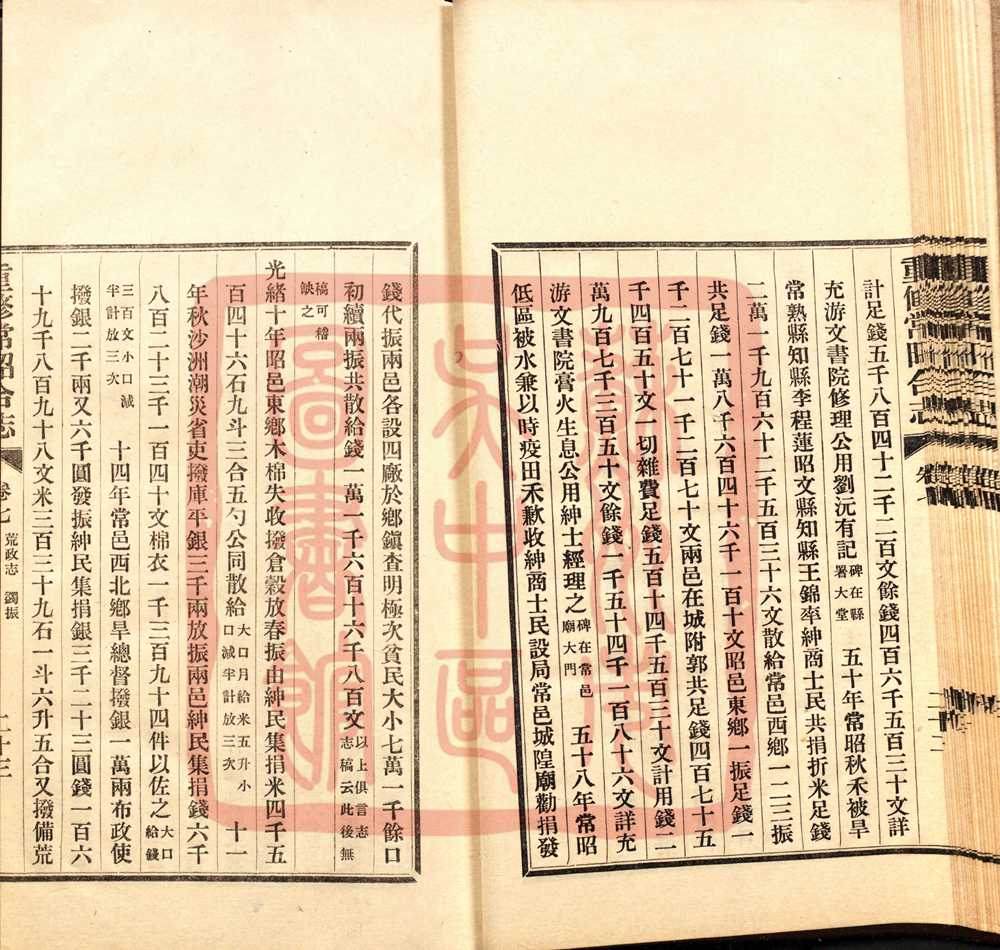 計足錢五千八百四十二千二百文餘錢四百六千五百三十文詳
充游文書院修理公用劉沅有記碑在縣署大堂 五十年常昭秋禾被旱
常熟縣知縣李程蓮昭文縣知縣王錦率紳商士民共捐折米足錢
二萬一千九百六十二千五百三十六文散給常邑西鄉一二三振
共足錢一萬八千六百四十六千一百十文昭邑東鄉一振足錢一
千二百七十一千二百七十文兩邑在城附郭共足錢四百七十五
千四百五十文一切雜費足錢五百十四千五百三十文計用錢二
萬九百七千三百五十文餘錢一千五十四千一百八十六文詳充
游文書院膏火生息公用紳士經理之碑在常邑廟大門 五十八年常昭
低區被水兼以時疫田禾歉收紳商士民設局常邑城隍廟勸捐發
錢代振兩邑各設四廠於鄉鎮查明極次貧民大小七萬一千餘口
初續兩振共散給錢一萬一千六百十六千八百文以上俱言志志稿云此後無
稿可稽缺之
光緒十年昭邑東鄉木棉失收撥倉穀放春振由紳民集捐米四千五
百四十六石九斗三合五勺公同散給大口月給米五升小口減半計放三次 十一
年秋沙洲潮災省吏撥庫平銀三千兩放振兩邑紳民集捐錢六千
八百二十三千一百四十文棉衣一千三百九十四件以佐之大口給錢
三百文小口減半計放三次 十四年常邑西北鄉旱總督撥銀一萬兩布政使
撥銀二千兩又六千圓發振紳民集捐銀三千二十三圓錢一百六
十九千八百九十八文米三百三十九石一斗六升五合又撥備荒
重修常昭合志
卷七 荒政志 蠲振
二十三